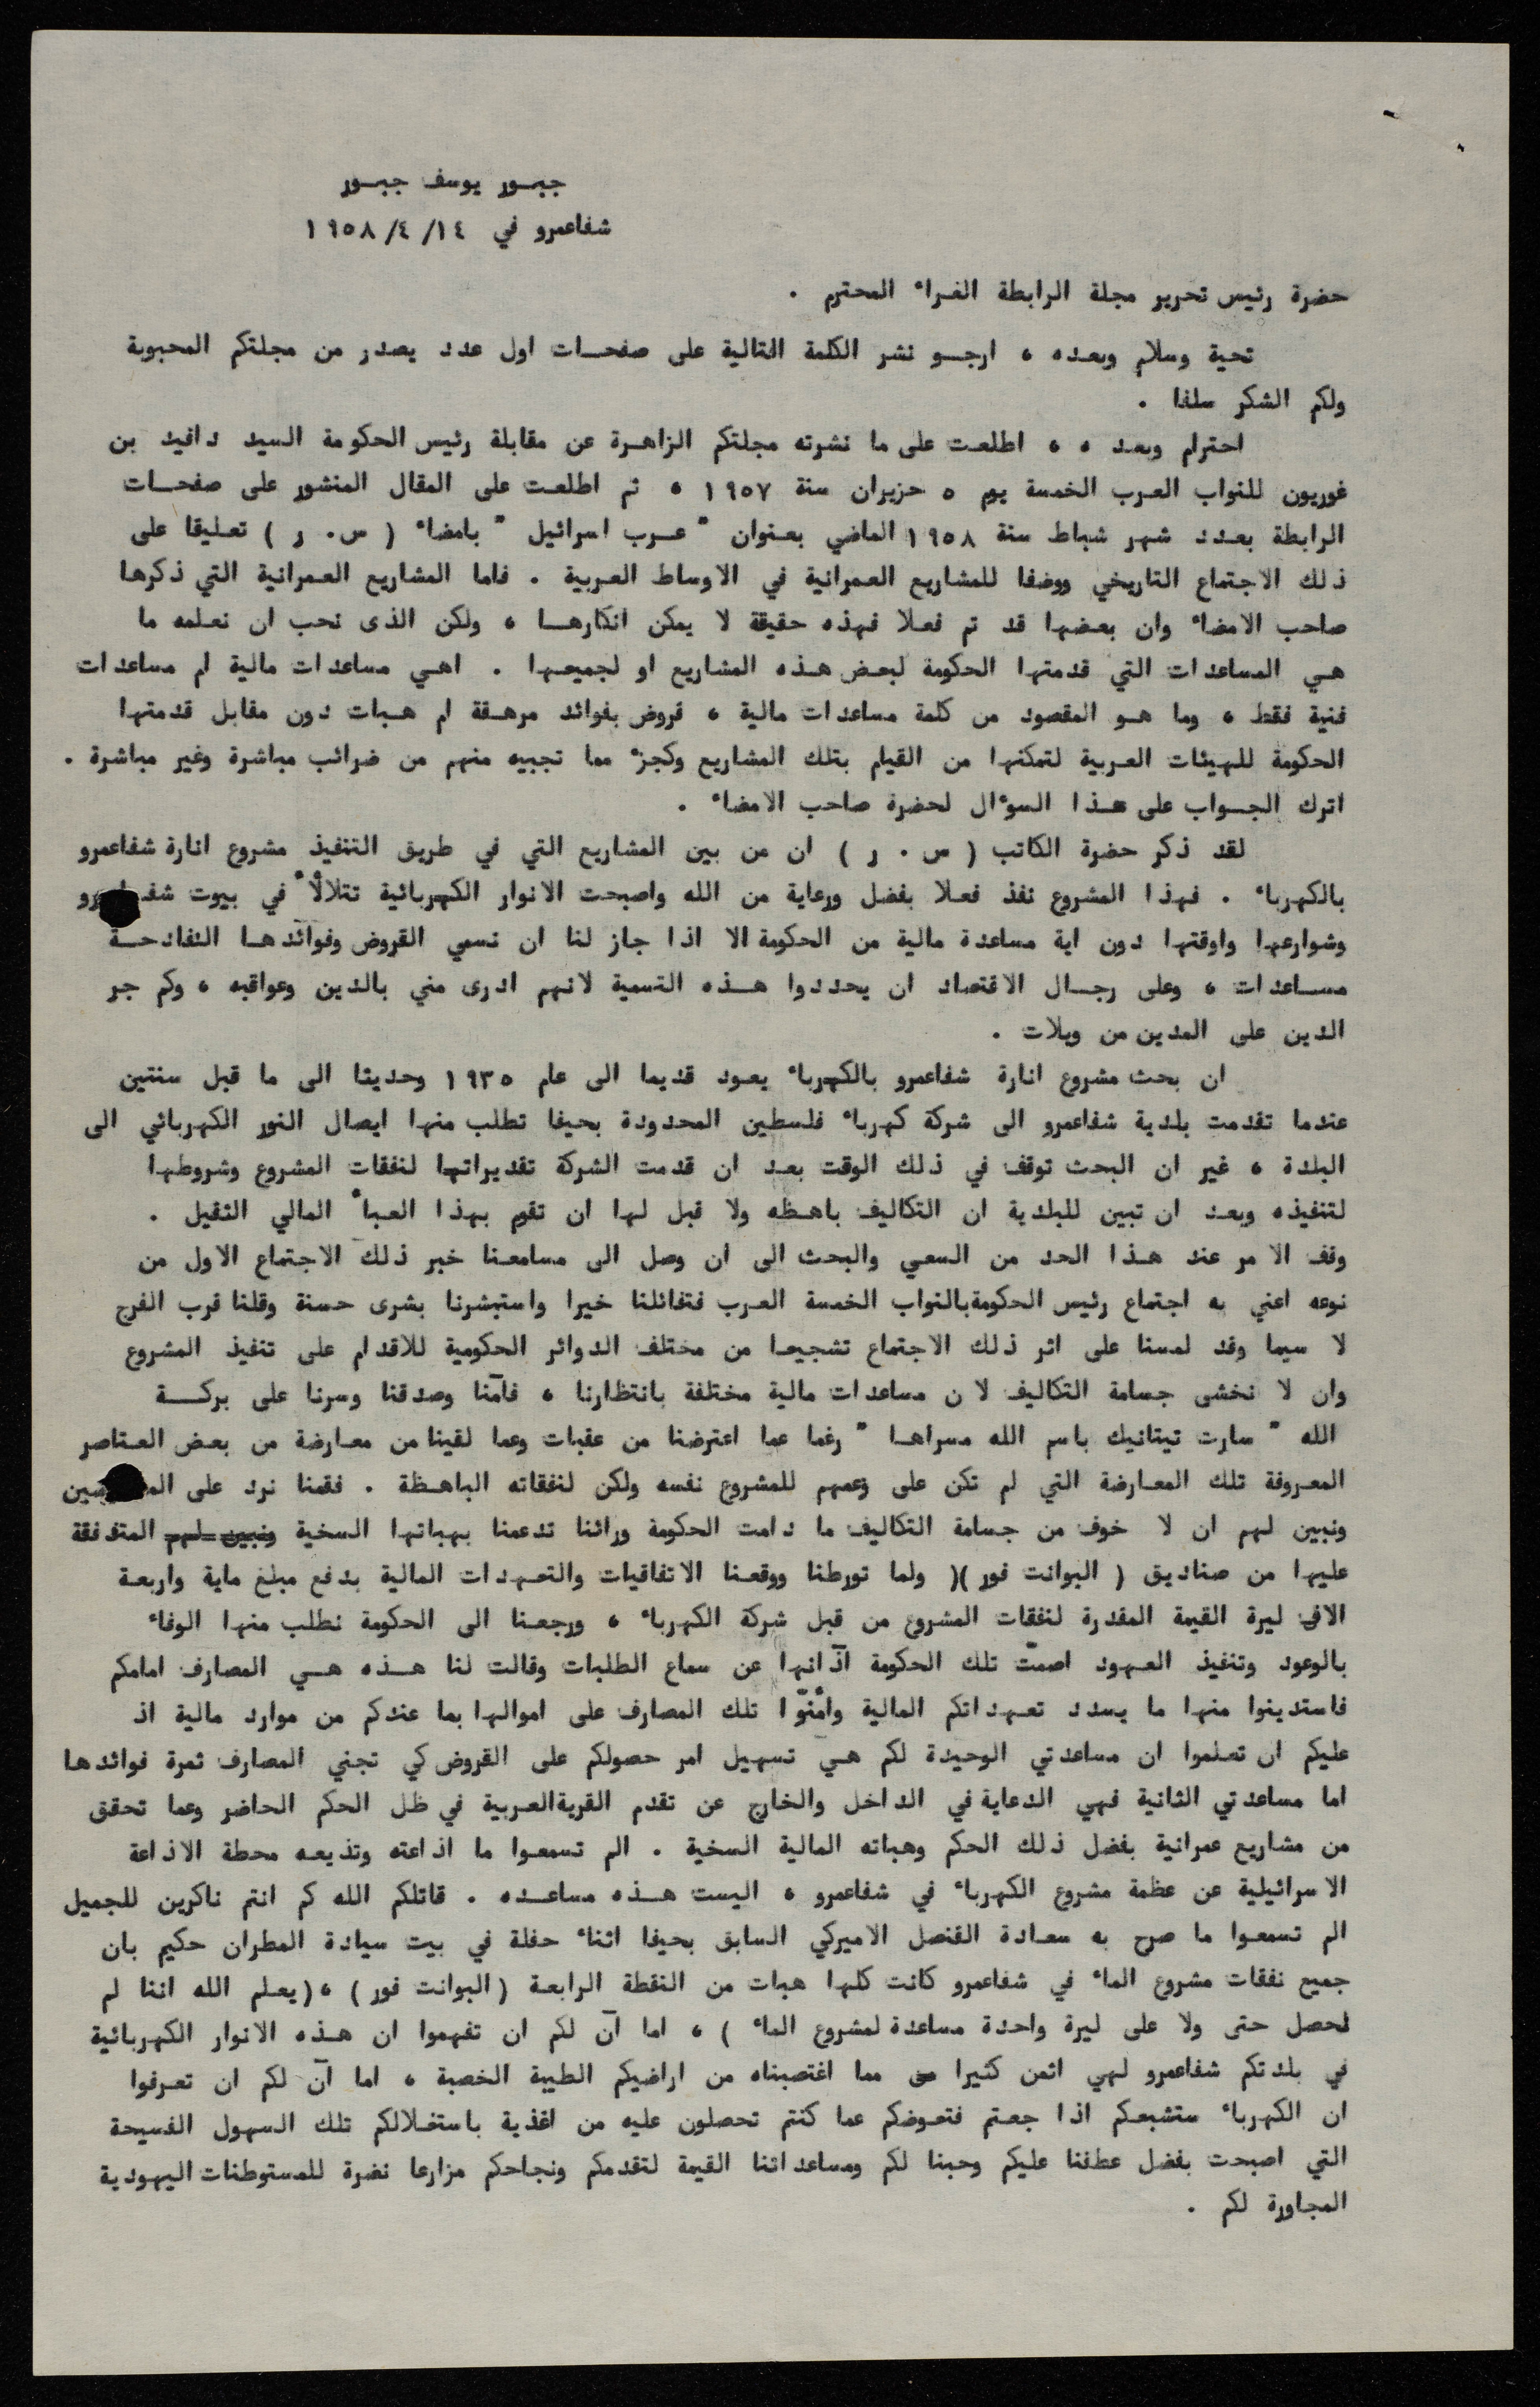 جبـور يوسف جبـور
شفاعمرو في ١٤ /٤ /١٩٥٨
حضرة رئيس تحرير مجلة الرابطة الغراء المحترم .
تحية وسلام وبعده ، ارجـو نشر الكلمة التالية على صفحـات اول عدد يصدر من مجلتكم المحبوبة
ولكم الشكر سلفا .
احترام وبعد ، ، اطلعت على ما نشرته مجلتكم الزاهـرة عن مقابلة رئيس الحكومة السيد دافيد بن
غوريون للنواب العرب الخمسة يوم ٥ حزيران سنة ١٩٥٧ ، ثم اطلعت على المقال المنشور على صفحـات
الرابطة بعدد شهر شباط سنة ١٩٥٨ الماضي بعنوان " عـرب اسرائيل " بامضاء ( س. ر ) تعليقا على
ذلك الاجتماع التاريخي ووضفا للمشاريع العمرانية في الاوساط العربية . فاما المشاريع العمرانية التي ذكرها
صاحب الامضاء وان بعضها قد تم فعلا فهذه حقيقة لا يمكن انكارهـا ، ولكن الذى نحب ان نعلمه ما
هـي المساعدات التي قدمتها الحكومة لبعض هـذه المشاريع او لجميعـها . اهـي مساعدات مالية ام مساعدات
فنية فقط ، وما هـو المقصود من كلمة مساعدات مالية ، قروض بفوائد مرهـقة ام هـبات دون مقابل قدمتها
الحكومة للهيئات العربية لتمكنها من القيام بتلك المشاريع وكجزء مما تجبيه منهم من ضرائب مباشرة وغير مباشرة .
اترك الجـواب على هـذا السوءال لحضرة صاحب الامضاء .
لقد ذكر حضرة الكاتب ( س . ر ) ان من بين المشاريع التي في طريق التنفيذ مشروع انارة شفاعمرو
بالكهرباء . فهذا المشروع نفذ فعلا بفضل ورعاية من الله واصبحت الانوار الكهربائية تتلألأ في بيوت شفاعمرو
وشوارعها واوقتها دون اية مساعدة مالية من الحكومة الا اذا جاز لنا ان نسمي القروض وفوائدهـا الفادحـة
مسـاعدات ، وعلى رجـال الاقتصاد ان يحددوا هـذه التسمية لانهم ادرى مني بالدين وعواقبه ، وكم جر
الدين على المدين من ويلات .
ان بحث مشروع انارة شفاعمرو بالكهرباء يعود قديما الى عام ١٩٣٥ وحديثا الى ما قبل سنتين
عندما تقدمت بلدية شفاعمرو الى شركة كهرباء فلسطين المحدودة بحيفا تطلب منها ايصال النور الكهربائي الى
البلدة ، غير ان البحث توقف في ذلك الوقت بعد ان قدمت الشركة تقديراتها لنفقات المشروع وشروطها
لتنفيذه وبعد ان تبين للبلدية ان التكاليف باهـظه ولا قبل لها ان تقوم بهذا العبأ المالي الثقيل .
وقف الامر عند هـذا الحد من السعي والبحث الى ان وصل الى مسامعنا خبر ذلك الاجتماع الاول من
نوعه اعني به اجتماع رئيس الحكومة بالنواب الخمسة العرب فتفائلنا خيرا واستبشرنا بشرى حسنة وقلنا قرب الفرج
لا سيما وقد لمسنا على اثر ذلك الاجتماع تشجيعا من مختلف الدوائر الحكومية للاقدام على تنفيذ المشروع
وان لا نخشى جسامة التكاليف لان مساعدات مالية مختلفة بانتظارنا ، فآمنا وصدقنا وسرنا على بركـــة
الله " سارت تيتانيك باسم الله مسراهـا " رغما عما اعترضنا من عقبات وعما لقينا من معارضة من بعض العناصر
المعروفة تلك المعارضة التي لم تكن على زعمهم للمشروع نفسه ولكن لنفقاته الباهـظة . فقمنا نرد على المعارضين
ونبين لهم ان لا خوف من جسامة التكاليف ما دامت الحكومة ورائنا تدعمنا بهباتها السخية ونبين لهم المتدفقة
عليها من صناديق ( البوانت فور )( ولما تورطنا ووقعنا الاتفاقيات والتعهدات المالية بدفع مبلغ ماية واربعة
الاف ليرة القيمة المقدرة لنفقات المشروع من قبل شركة الكهرباء ، ورجعنا الى الحكومة نطلب منها الوفاء
بالوعود وتنفيذ العهود اصمّت تلك الحكومة آذانها عن سماع الطلبات وقالت لنا هـذه هـي المصارف امامكم
فاستدينوا منها ما يسدد تعهداتكم المالية وأمّنوا تلك المصارف على اموالها بما عندكم من موارد مالية اذ
عليكم ان تعلموا ان مساعدتي الوحيدة لكم هـي تسهيل امر حصولكم على القروض كي تجني المصارف ثمرة فوائدها
اما مساعدتي الثانية فهي الدعاية في الداخل والخارج عن تقدم القرية العربية في ظل الحكم الحاضر وعما تحقق
من مشاريع عمرانية بفضل ذلك الحكم وهباته المالية السخية . الم تسمعوا ما اذاعته وتذيعه محطة الاذاعة
الاسرائيلية عن عظمة مشروع الكهرباء في شفاعمرو ، اليست هـذه مساعـده . قاتلكم الله كم انتم ناكرين للجميل
الم تسمعوا ما صرح به سعادة القنصل الاميركي السابق بحيفا اثناء حفلة في بيت سيادة المطران حكيم بان
جميع نفقات مشروع الماء في شفاعمرو كانت كلها هبات من النقطة الرابعة ( البوانت فور ) ، ( يعلم الله اننا لم
نحصل حتى ولا على ليرة واحدة مساعدة لمشروع الماء ) ، اما آن لكم ان تفهموا ان هـذه الانوار الكهربائية
في بلدتكم شفاعمرو لهي اثمن كثيرا مما اغتصبناه من اراضيكم الطيبة الخصبة ، اما آن لكم ان تعرفوا
ان الكهرباء ستشبعكم اذا جعتم فتعوضكم عما كنتم تحصلون عليه من اغذية باستغلالكم تلك السهول الفسيحة
التي اصبحت بفضل عطفنا عليكم وحبنا لكم ومساعداتنا القيمة لتقدمكم ونجاحكم مزارعا نضرة للمستوطنات اليهودية
المجاورة لكم .